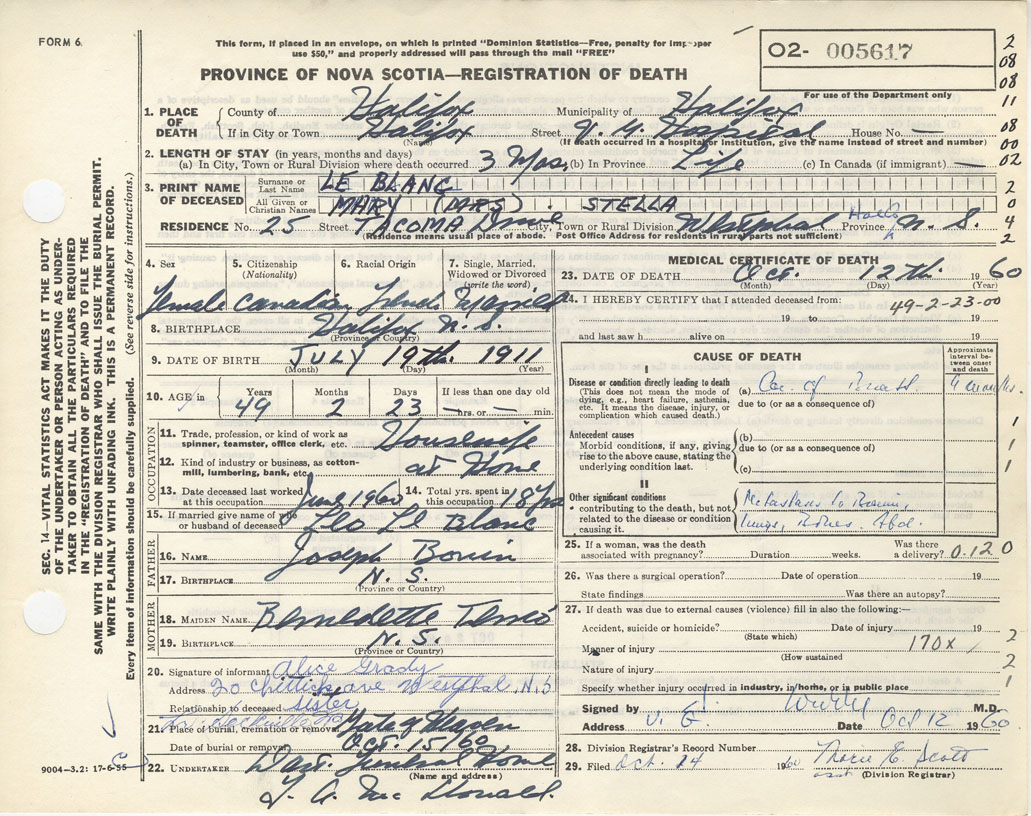 FORM 6.
This form, if placed in an envelope, on which is printed "Dominion Statistics—Free, penalty for improper
use $50," and properly addressed will pass through the mail "FREE"
O2- 005617
For use of the Department only
PROVINCE OF NOVA SCOTIA—REGISTRATION OF DEATH
2
08
08
11
08
00
02
2
0
4
2
1. PLACE OF DEATH
County of Halifax Municipality of Halifax
If in City or Town Halifax Street V. G. Hospital House No. —
(Name) (If death occurred in a hospital or institution, give the name instead of street and number)
2. LENGTH OF STAY (in years, months and days)
(a) In City, Town or Rural Division where death occurred 3 Mos. (b) In Province Life (c) In Canada (if immigrant) —
3. PRINT NAME OF DECEASED
Surname or Last Name LE BLANC
All Given or Christian Names MARY (MRS) . STELLA
RESIDENCE No. 25 Street TACOMA Drive City, Town or Rural Division Westphal Halifx Province N. S.
(Residence means usual place of abode. Post Office Address for residents in rural parts not sufficient)
4. Sex 5. Citizenship (Nationality) 6. Racial Origin 7. Single, Married, Widowed or Divorced (write the word)
Female Canadian French Married
8. BIRTHPLACE Halifax N. S.
(Province or Country)
9. DATE OF BIRTH JULY 19th. 1911
(Month) (Day) (Year)
10. AGE in Years Months Days If less than one day old
49 2 23 — hrs. or — min.
OCCUPATION
11. Trade, profession, or kind of work as spinner, teamster, office clerk, etc. Housewife
12. Kind of industry or business, as cotton-mill, lumbering, bank, etc. at Home
13. Date deceased last worked at this occupation June 1960 14. Total yrs. spent in this occupation 18 yrs
15. If married give name of wife or husband of deceased Leo Le Blanc
FATHER
16. NAME Joseph
17. BIRTHPLACE N. S.
(Province or Country)
MOTHER
18. MAIDEN NAME Bernedette
19. BIRTHPLACE N. S.
(Province or Country)
20. Signature of informant Alice Grady
Address 20 Chittick ave Westphal, N.S
Relationship to deceased sister
21. Place of burial, cremation or removal Gate of Heaven
Date of burial or removal Oct. 15/60
22. UNDERTAKER Dart. Funeral Home
(Name and address)
T. A. Mc Donald.
MEDICAL CERTIFICATE OF DEATH
23. DATE OF DEATH Oct. 12th. 1960
(Month) (Day) (Year)
24. I HEREBY CERTIFY that I attended deceased from:
49-2-23-00
19 to 19
and last saw h alive on 19
CAUSE OF DEATH
Approximate interval between onset and death
I
Disease or condition directly leading to death
(This does not mean the mode of dying, e.g., heart failure, asthenia, etc. It means the disease, injury, or complication which caused death.)
(a) Ca. of Breast. 4 months.
due to (or as a consequence of)
Antecedent causes
Morbid conditions, if any, giving rise to the above cause, stating the underlying condition last.
(b)
due to (or as a consequence of)
(c)
1
1
1
II
Other significant conditions
contributing to the death, but not related to the disease or condition causing it.
Metastases to
lungs, Bones. Abd.
25. If a woman, was the death associated with pregnancy? Duration weeks. Was there a delivery? 0.12 0
26. Was there a surgical operation? Date of operation 19
State findings Was there an autopsy?
27. If death was due to external causes (violence) fill in also the following:—
Accident, suicide or homicide? Date of injury 19
(State which)
Manner of injury 170X
(How sustained)
Nature of injury
Specify whether injury occurred in industry, in home, or in public place
2
2
1
Signed by M.D.
Address V. G. Date Oct 12 1960
28. Division Registrar's Record Number
29. Filed Oct. 24 1960 E. Scott
asst (Division Registrar)
SEC. 14—VITAL STATISTICS ACT MAKES IT THE DUTY
OF THE UNDERTAKER OR PERSON ACTING AS UNDER-
TAKER TO OBTAIN ALL THE PARTICULARS REQUIRED
IN THE "REGISTRATION OF DEATH" AND FILE THE
SAME WITH THE DIVISION REGISTRAR WHO SHALL ISSUE THE BURIAL PERMIT.
WRITE PLAINLY WITH UNFADING INK. THIS IS A PERMANENT RECORD.
Every item of information should be carefully supplied. (See reverse side for instructions.)
9004-3.2: 17-6-55